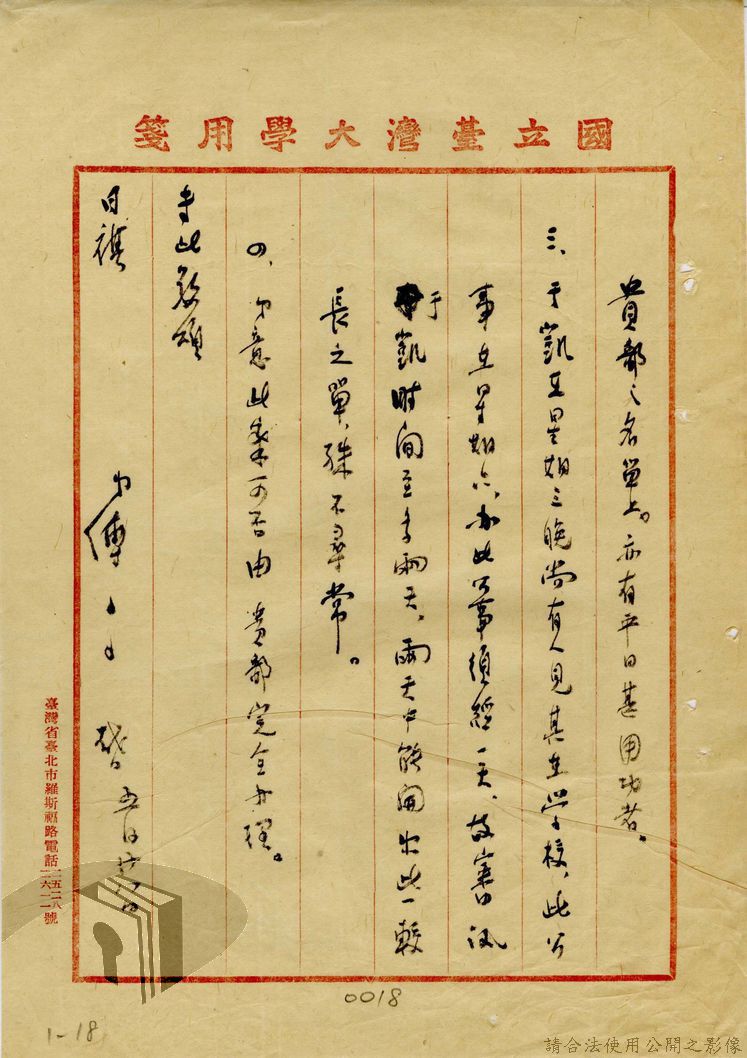 國立臺灣大學用箋
貴部之名單上。亦有平日甚用功者。
三、于凱在星期三晚尚有人見其在學校、此公
事在星期六、水此公事須經一天、故審訊
于凱時間至多兩天、兩天中能開出此一較
長之單、殊不尋常。
四、弟意此案可否由 貴部完全辦理。
专此敬頌
日祺
弟傅 啓 五月廿
臺灣省臺北市羅斯福路電話二五二八 二六一一號
0018
1-18
請合法使用公開之影像